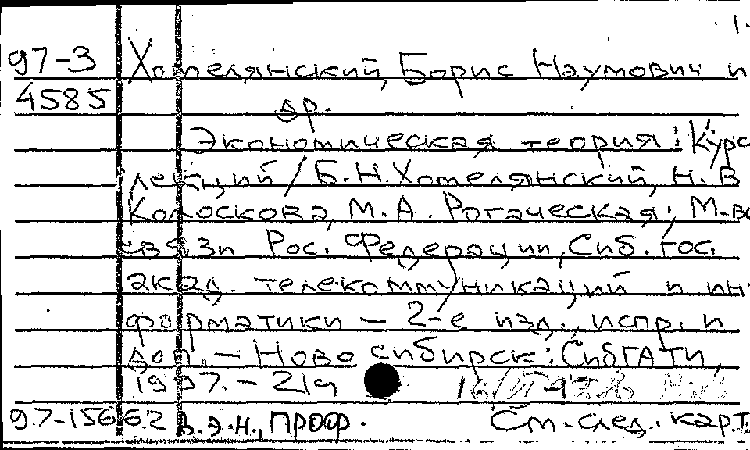 97-3 Хотелянский, Борис Наумович и
4585 др.
Экономическая теория: Курс
лекций / Б.Н. Хотелянский, Н.В
Колоскова, М.А. Рогаческая; М-во
связи Рос. Федерации, Сиб. гос.
акад. телекоммуникаций и ин-
форматики – 2-е изд., испр. и
доп. – Новосибирск: СибГАТИ,
1997. – 219
97-15662 д.э.н., проф. См. след. карт.